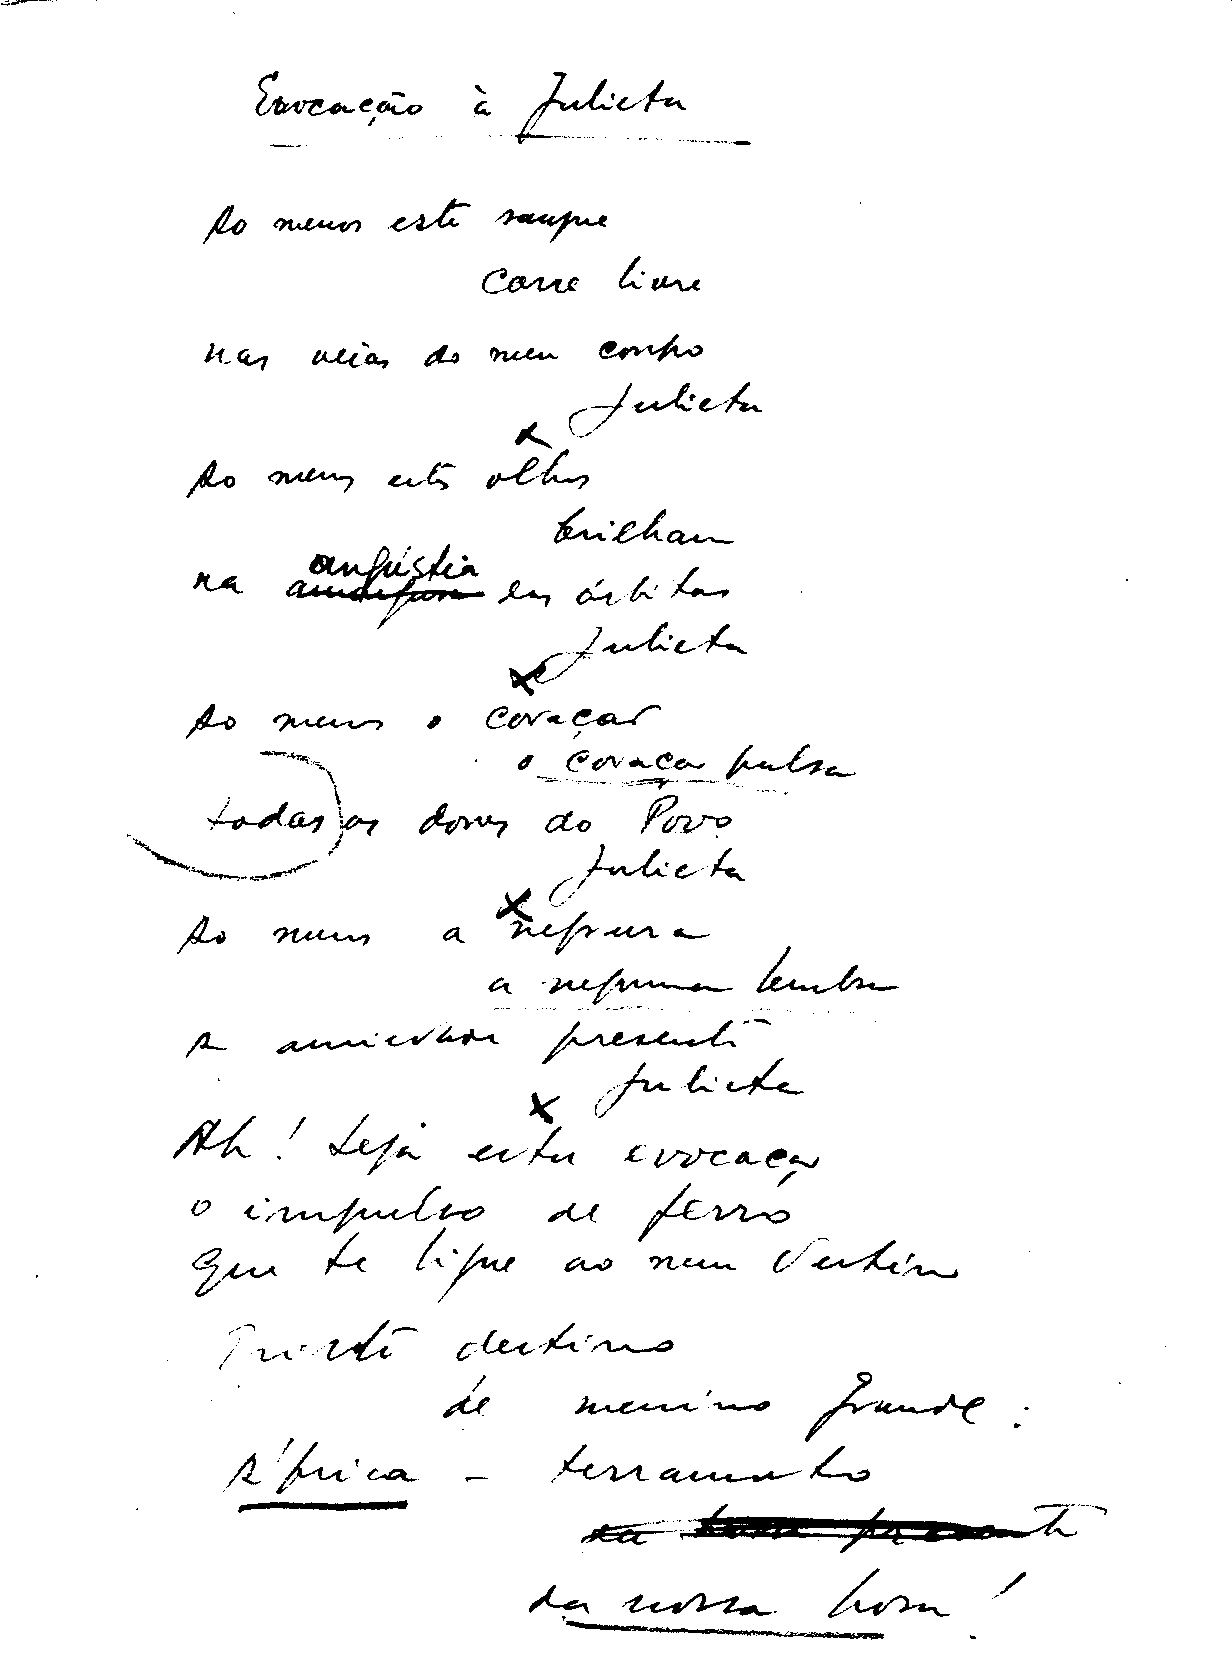 Evocação à Julieta
Ao menos este sangue
corre livre
nas veias do meu corpo
Julieta
x
Ao menos estes olhos
brilham
angústia
na das órbitas
Julieta
x
Ao menos o coração
o coração pulsa
todas as dores do Povo
Julieta
x
Ao menos a negrura
a negrura lembra
A presente
Julieta
x
Ah! Seja esta evocação
o impulso de ferro
que te ligue ao meu destino
Triste destino
de menino grande:
África – terramoto
da nossa hora!